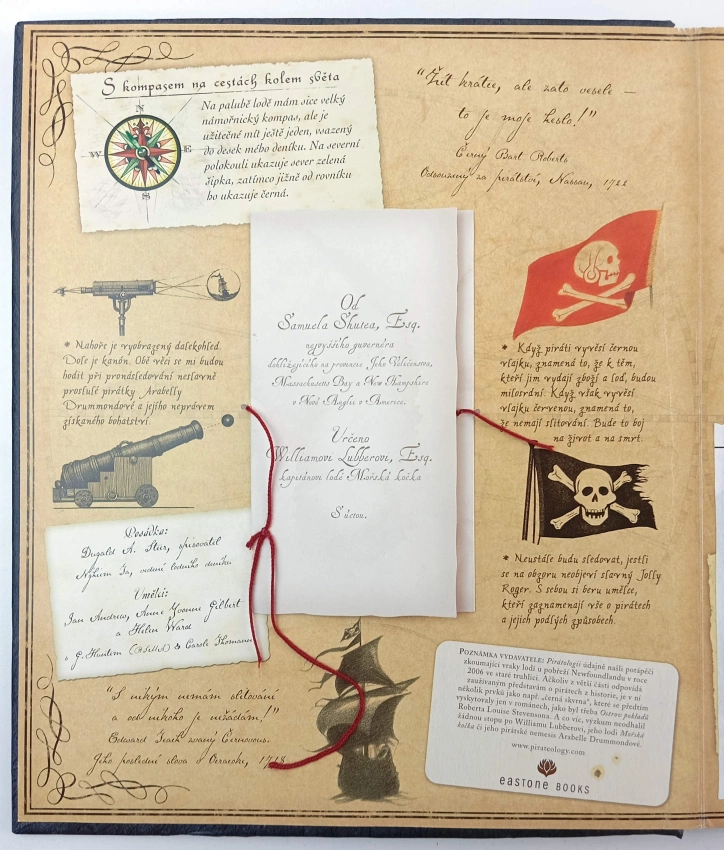 S kompasem na cestách kolem světa
N
W
E
S
Na palubě lodě mám sice velký
námořnický kompas, ale je
užitečné mít ještě jeden, vsazený
do desek mého deníku. Na severní
polokouli ukazuje sever zelená
šipka, zatímco jižně od rovníku
ho ukazuje černá.
"Žít krátce, ale zato vesele –
to je moje heslo!"
Černý Bart Roberts
Odsouzený za pirátství, Nassau, 1722
* Nahoře je vyobrazený dalekohled.
Dole je kanón. Obě věci se mi budou
hodit při pronásledování neslavně
proslulé pirátky Arabelly
Drummondové a jejího neprávem
získaného bohatství.
Od
Samuela Shutea, Esq.
nejvyššího guvernéra
dohlížejícího na provincie Jeho Veličenstva,
Massachusetts Bay a New Hampshire
v Nové Anglii v Americe.
Určeno
Williamovi Lubberovi, Esq.
kapitánovi lodě Mořská kočka
S úctou.
* Když piráti vyvěsí černou
vlajku, znamená to, že k těm,
kteří jim vydají zboží a loď, budou
milosrdní. Když však vyvěsí
vlajku červenou, znamená to,
že nemají slitování. Bude to boj
na život a na smrt.
* Neustále budu sledovat, jestli
se na obzoru neobjeví slavný Jolly
Roger. S sebou si beru umělce,
kteří zaznamenají vše o pirátech
a jejich podlých způsobech.
Posádka:
Dugald A. Steer, spisovatel
Nghiem Ta, vedení lodního deníku
Umělci:
Ian Andrew, Anne Yvonne Gilbert
a Helen Ward
"S nikým nemám slitování
a od nikoho je nežádám!"
Edward Teach zvaný Černovous.
Jeho poslední slova v Ocracoke, 1718
POZNÁMKA VYDAVATELE: Piratologii údajně našli potápěči
zkoumající vraky lodí u pobřeží Newfoundlandu v roce
2006 ve staré truhlici. Ačkoliv z větší části odpovídá
zaužívaným představám o pirátech z historie, je v ní
několik prvků jako např. „černá skvrna", které se předtím
vyskytovaly jen v románech, jako byl třeba Ostrov pokladů
Roberta Louise Stevensona. A co víc, výzkum neodhalil
žádnou stopu po Williamu Lubberovi, jeho lodi Mořská
kočka či jeho pirátské nemesis Arabelle Drummondové.
www.pirateology.com
eastone BOOKS